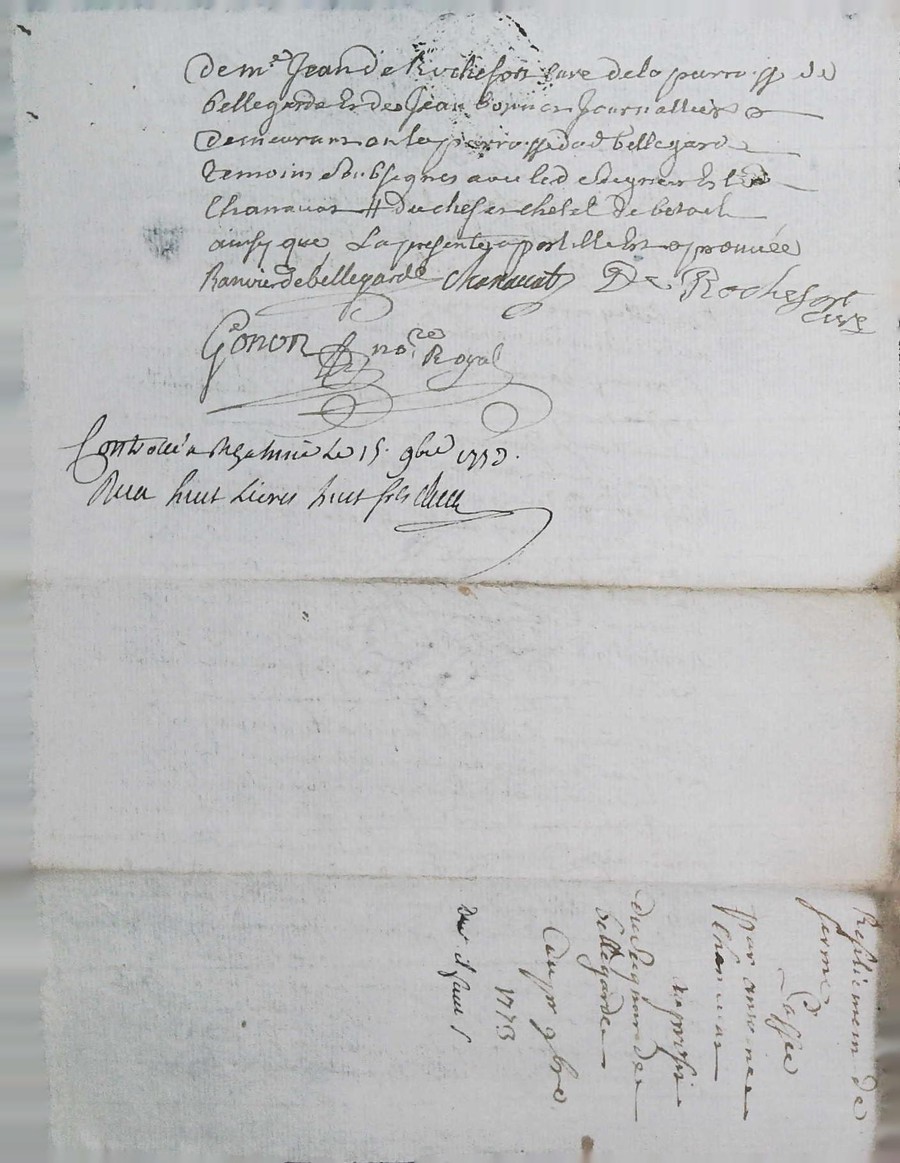 De mre Jean De Rochefort Curé de la parroisse de
bellegarde Et de Jean bonnon Journallier
Demeurant en la parroisse dud bellegarde
temoins Soubsignes avec led Seigneur Et led
Chanavat # du chef et cheptel de betail
ainsy que La presente apostille Est aprouvée
Ranvier de bellegarde Chanavat De Rochefort
Curé
Gonon nore Royal
Controllé a le 15. 9bre 1773.
Reçu huit Livres huit sols
ferme
Passée
Par antoine
Chanavat
au profit
du Seigneur de
bellegarde
Du 9bre
1773